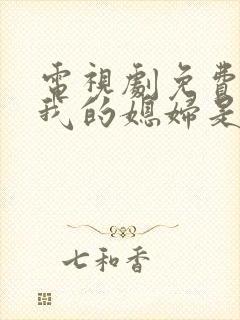 電視劇免費
我的媳婦是
七和香